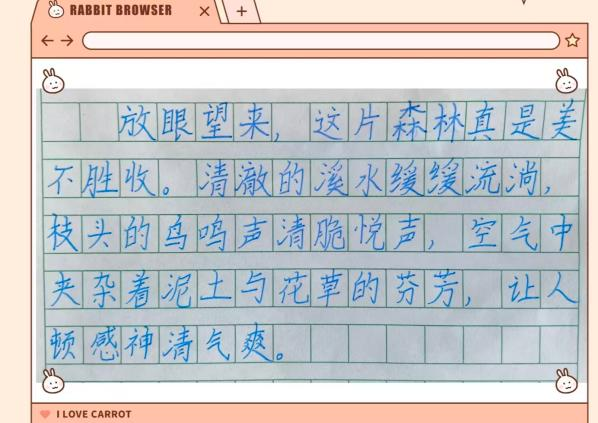 RABBIT BROWSER
放眼望来，这片森林真是美
不胜收。清澈的溪水缓缓流淌，
枝头的鸟鸣声清脆悦声，空气中
夹杂着泥土与花草的芬芳，让人
顿感神清气爽。
I LOVE CARROT